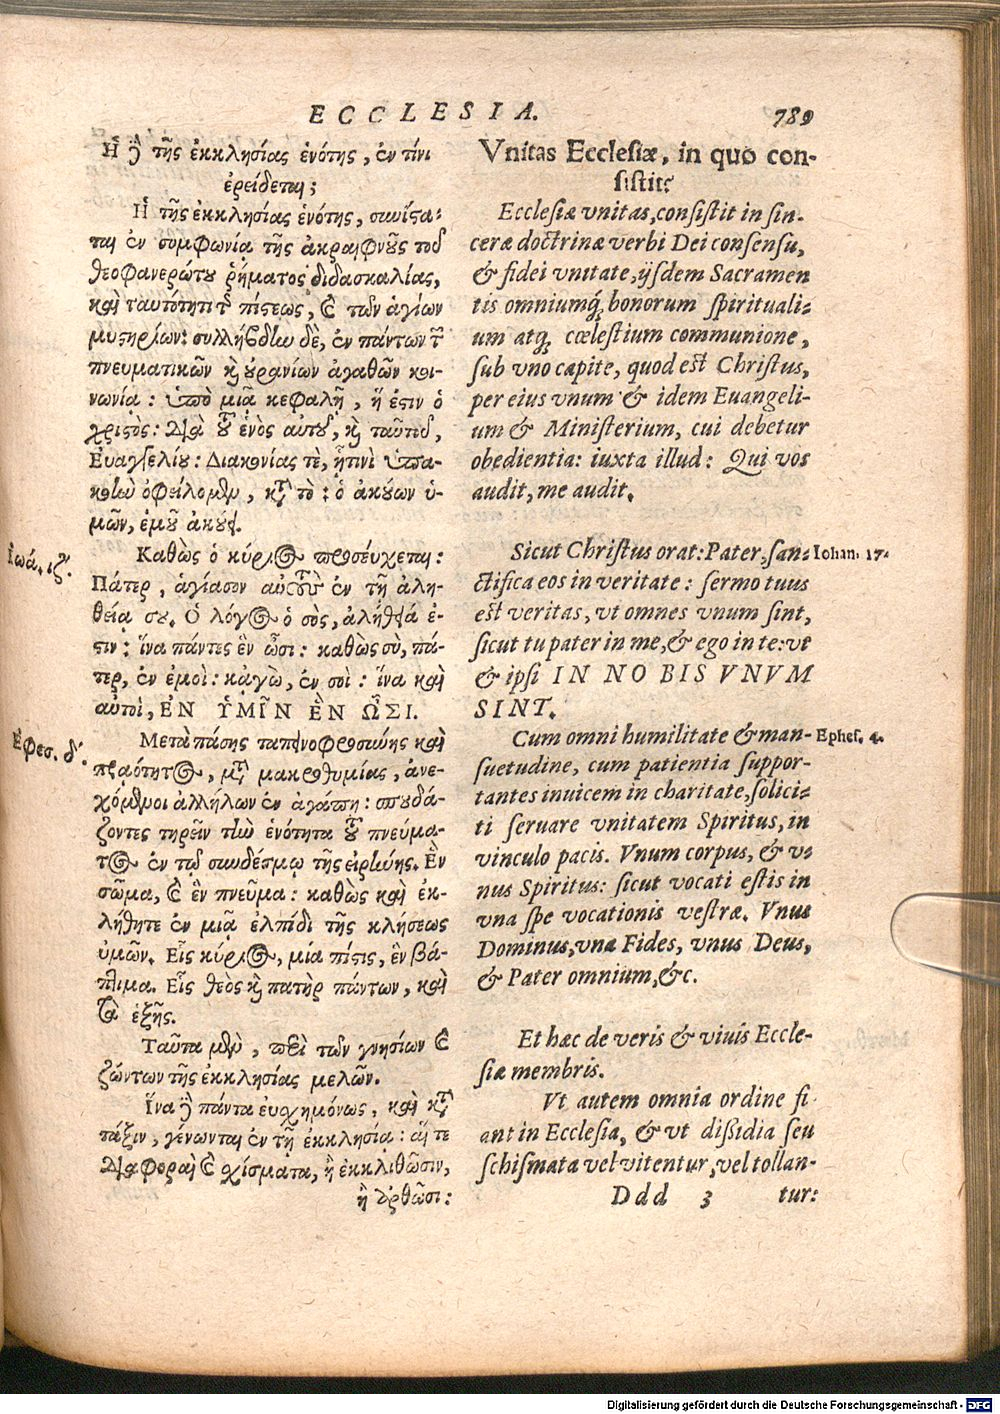 ECCLESIA.
789
Ἡ δὲ τῆς ἐκκλησίας ἑνότης, ἐν τίνι
ἐρείδεται;
Ἡ τῆς ἐκκλησίας ἑνότης, συνίστα-
ται ἐν συμφωνία τῆς ἀκραιφνοῦς τοῦ
θεοφανερώτου ῥήματος διδασκαλίας,
καὶ ταυτότητι τῆς πίστεως, καὶ τῶν ἁγίων
μυστηρίων: συλλήβδην δὲ, ἐν πάντων τῶν
πνευματικῶν καὶ οὐρανίων ἀγαθῶν κοι-
νωνία: ὑπὸ μιᾷ κεφαλῇ, ἥ ἐστιν ὁ
χριστός: διὰ τοῦ ἑνὸς αὐτοῦ, καὶ ταὐτοῦ,
Ευαγγελίου: Διακονίας τὲ, ᾗτινὶ ὑπα-
κοὴν ὀφείλομεν, κατὰ τὸ: ὁ ἀκούων ὑ-
μῶν, ἐμοῦ ἀκούει.
Ἰωά. ιζʹ.
Καθὼς ὁ κύριος προσέυχεται:
Πάτερ, ἁγίασον αὐτοὺς ἐν τῇ ἀλη-
θείᾳ σου. Ὁ λόγος ὁ σὸς, ἀλήθειά ἐ-
στιν: ἵνα πάντες ἓν ὦσι: καθὼς σὺ, πά-
τερ, ἐν ἐμοὶ: κᾀγὼ, ἐν σοὶ: ἵνα καὶ
αὐτοὶ, ἘΝ ὙΜΙ͂Ν ἛΝ ὮΣΙ.
Ἐφεσ. δʹ.
Μετὰ πάσης ταπεινοφροσύνης καὶ
πραότητος, μετὰ μακροθυμίας, ἀνε-
χόμενοι ἀλλήλων ἐν ἀγάπῃ: σπουδά-
ζοντες τηρεῖν τὴν ἑνότητα τοῦ πνεύμα-
τος ἐν τῷ συνδέσμῳ τῆς εἰρήνης. Ἓν
σῶμα, καὶ ἓν πνεῦμα: καθὼς καὶ ἐκ-
λήθητε ἐν μιᾷ ἐλπίδι τῆς κλήσεως
ὑμῶν. Εἷς κύριος, μία πίστις, ἓν βά-
πτισμα. Εἷς θεὸς καὶ πατὴρ πάντων, καὶ
τὰ ἑξῆς.
Ταῦτα μὲν, περὶ τῶν γνησίων καὶ
ζώντων τῆς ἐκκλησίας μελῶν.
Ἵνα δὲ πάντα ευχημόνως, καὶ κατὰ
τάξιν, γένωνται ἐν τῇ ἐκκλησίᾳ: αἵ τε
διαφοραὶ καὶ σχίσματα, ἢ ἐκκλιθῶσιν,
ἢ ἀρθῶσι:
Vnitas Ecclesiæ, in quo con-
sistit?
Ecclesiæ vnitas, consistit in sin-
ceræ doctrinæ verbi Dei consensu,
& fidei vnitate, ijsdem Sacramen
tis omniumq́; bonorum spirituali-
um atq; cœlestium communione,
sub vno capite, quod est Christus,
per eius vnum & idem Euangeli-
um & Ministerium, cui debetur
obedientia: iuxta illud: Qui vos
audit, me audit.
Sicut Christus orat: Pater, san-
Iohan. 17.
ctifica eos in veritate: sermo tuus
est veritas, vt omnes vnum sint,
sicut tu pater in me, & ego in te: vt
& ipsi IN NOBIS VNVM
SINT.
Cum omni humilitate & man-
Ephes. 4.
suetudine, cum patientia suppor-
tantes inuicem in charitate, solici-
ti seruare vnitatem Spiritus, in
vinculo pacis. Vnum corpus, & v-
nus Spiritus: sicut vocati estis in
vna spe vocationis vestræ. Vnus
Dominus, vna Fides, vnus Deus,
& Pater omnium, &c.
Et hæc de veris & viuis Eccle-
siæ membris.
Vt autem omnia ordine fi-
ant in Ecclesia, & vt dißidia seu
schismata vel vitentur, vel tollan-
Ddd 3
tur:
Digitalisierung gefördert durch die Deutsche Forschungsgemeinschaft - DFG